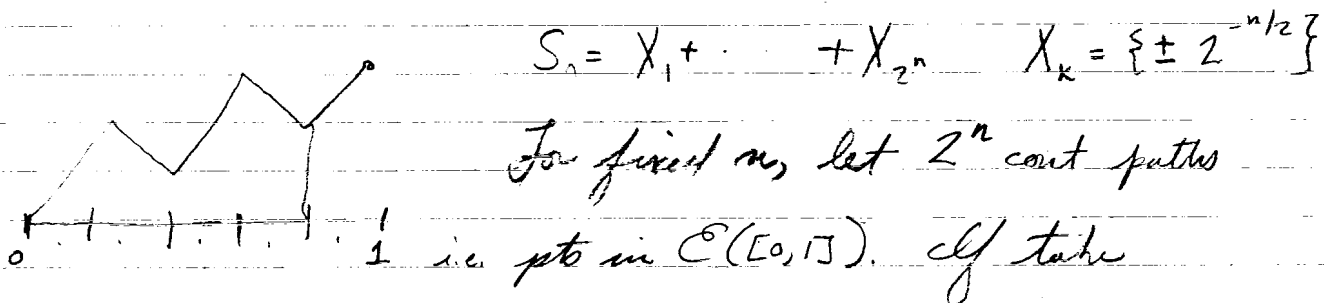 S_n = X_1 + · · · + X_{2^n}   X_k = {± 2^{-n/2}}
For fixed n, let 2^n cont paths
0 1 i.e. pts in C([0,1]). If take